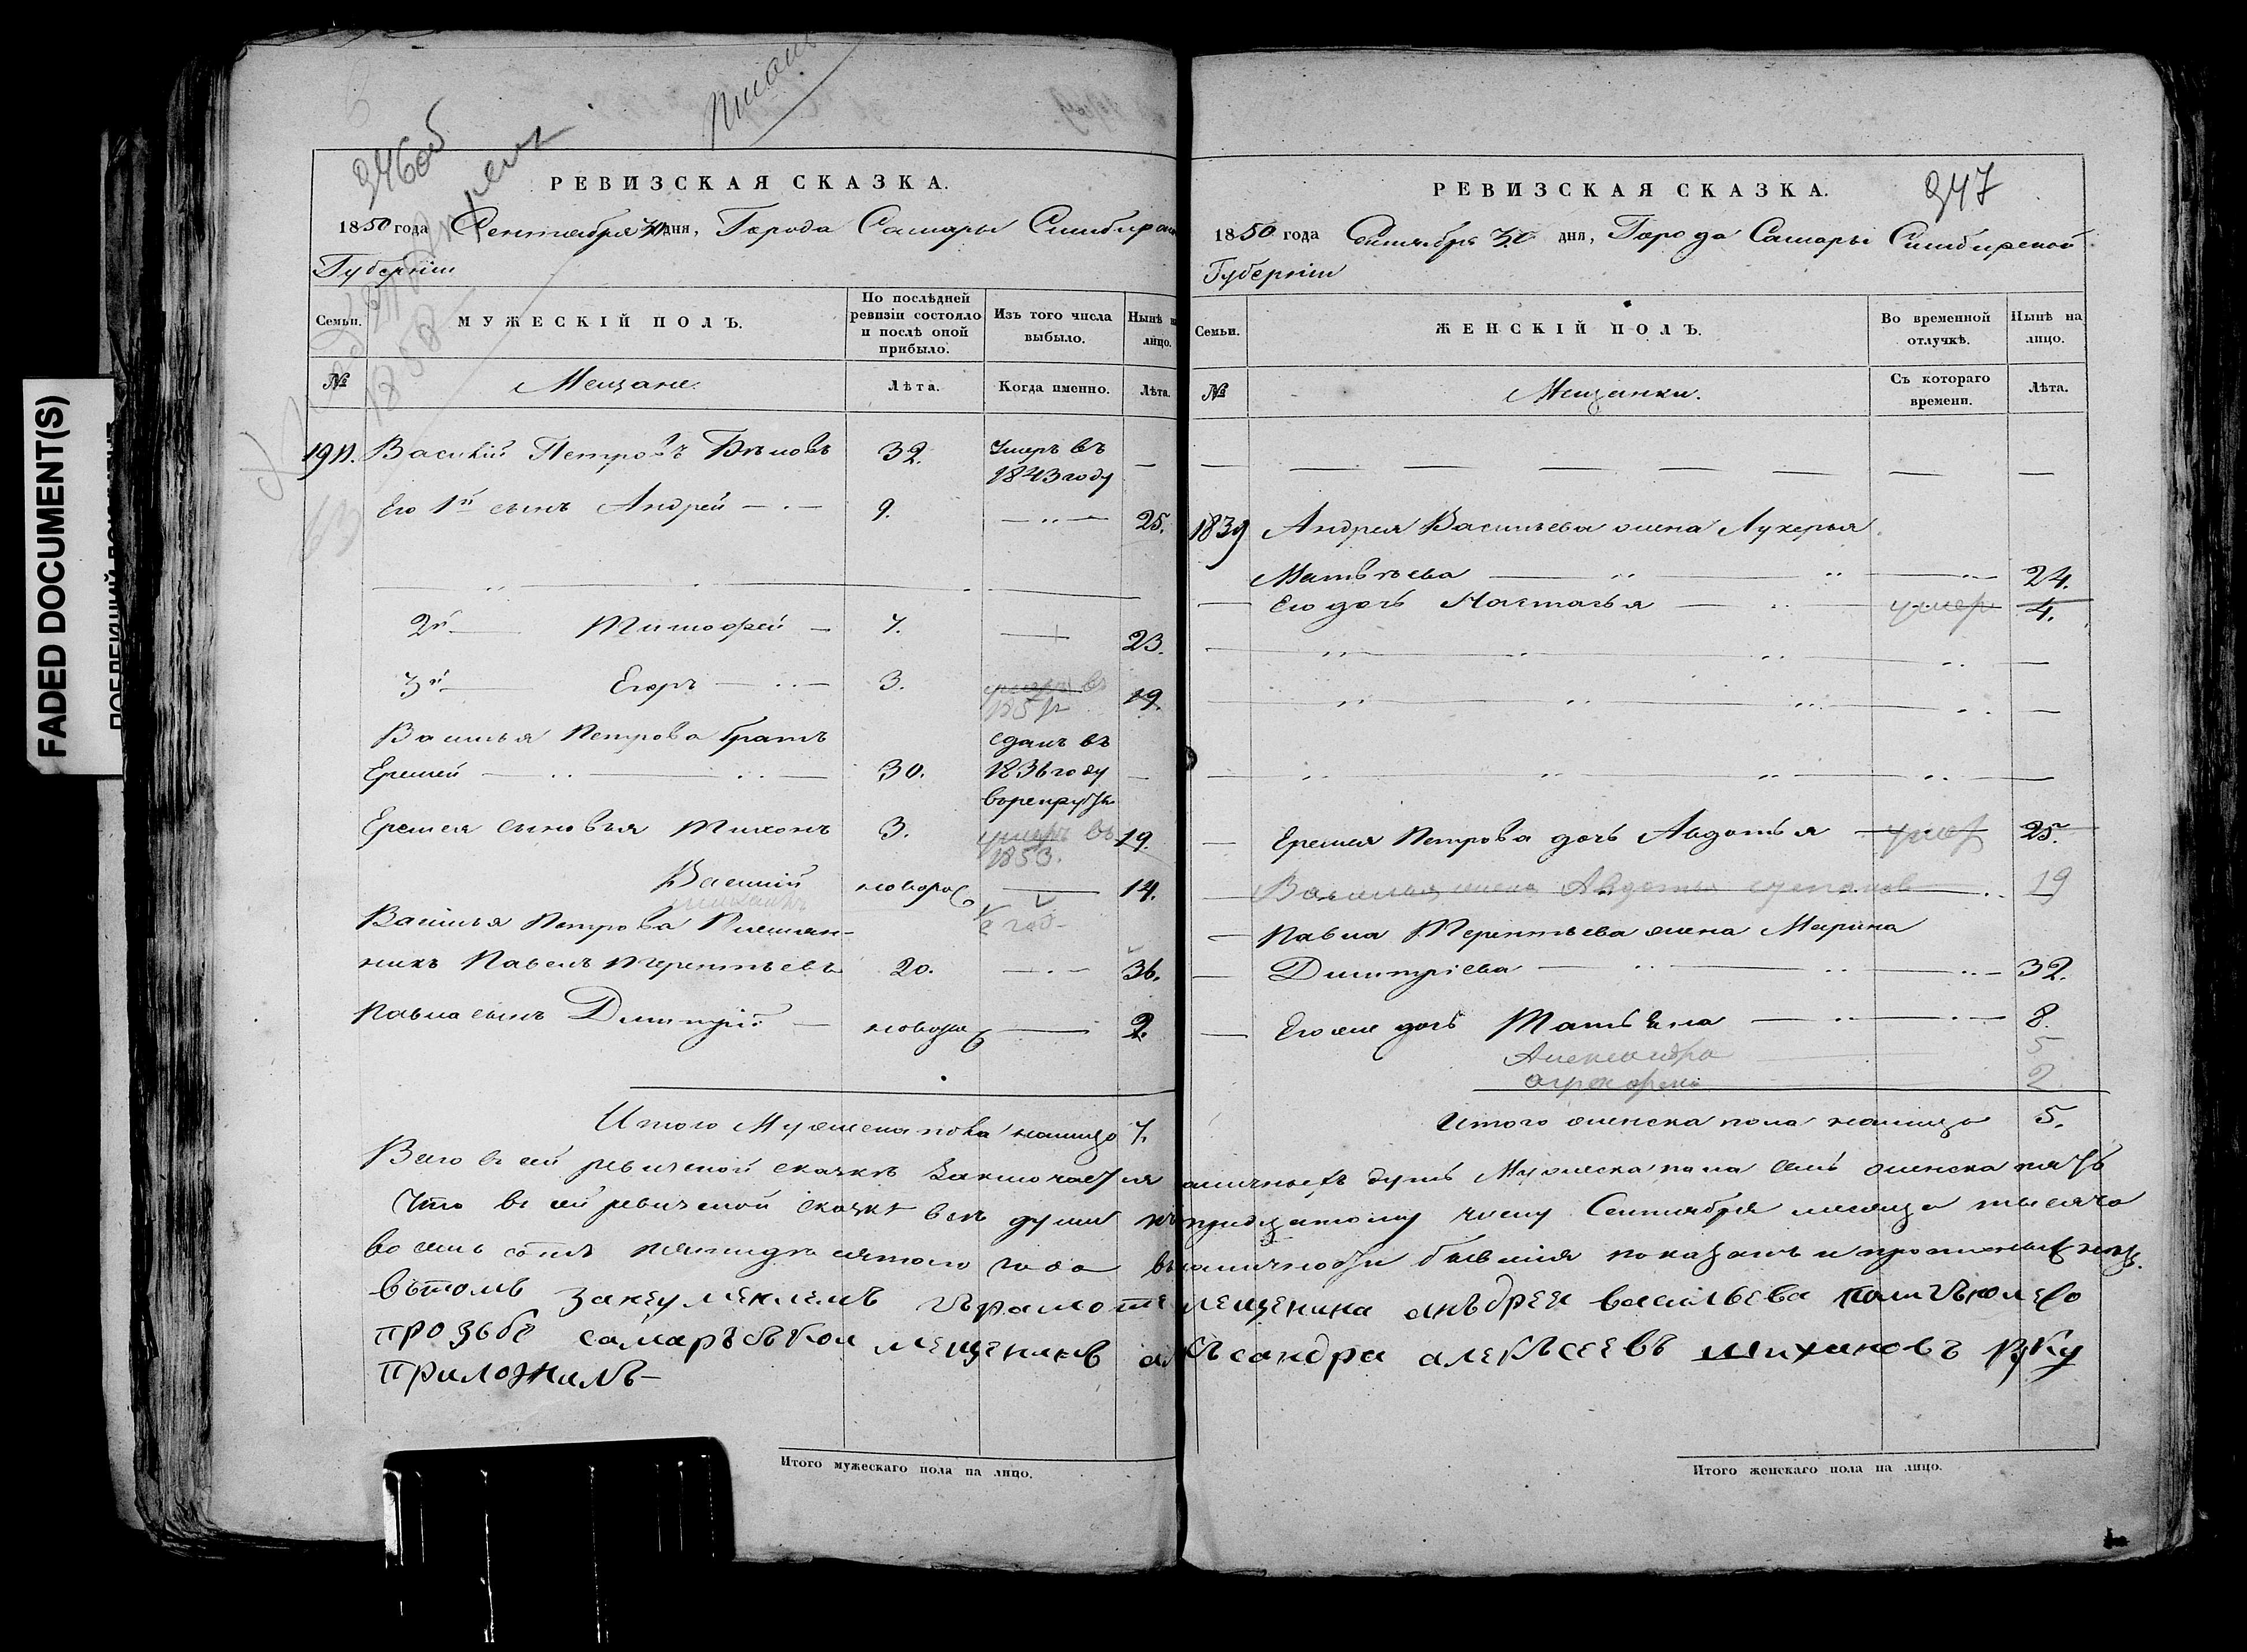 FADED DOCUMENT(S)
346об
РЕВИЗСКАЯ СКАЗКА.
1850 года Сентября 30 дня, Города Самары Симбирской
Губерніи
Семьи.
МУЖЕСКІЙ ПОЛЪ.
По послѣдней ревизіи состояло и послѣ оной прибыло.
Изъ того числа выбыло.
Нынѣ на лицо.
№
Мещане.
Лѣта.
Когда именно.
Лѣта.
Василій Петровъ Бѣловъ 32. Умеръ въ 1843 году —
Его 1й сынъ Андрей 9. — 25.
2й — Тимофей — 7. — 23.
3й — Егоръ — 3. умеръ въ 19.
Василья Петрова братъ
Еремей 30. сданъ въ 1836 году —
Еремея сыновья Тихонъ 3. умеръ въ 1853. 19.
Василий новорож — 14.
Василья Петрова Племян-
никъ Павелъ Терентьевъ 20. — 36.
Павла сынъ Дмитрій — новорож — 2.
Итого Мужеска пола налицо 7.
РЕВИЗСКАЯ СКАЗКА.
347
1850 года Сентября 30 дня, Города Самары Симбирской
Губерніи
Семьи.
ЖЕНСКІЙ ПОЛЪ.
Во временной отлучкѣ.
Нынѣ на лицо.
№
Мещанки.
Съ котораго времени.
Лѣта.
Андрея Васильева жена Лукерья
Матвѣева 24.
Его дочь Настасья — умер 4.
Еремея Петрова дочь Авдотья — умер 25.
Василья жена Авдотья 19
Павла Терентьева жена Марина
Дмитріева 32.
Его же дочь Татьяна 8.
Александра 5
2
Итого женска пола налицо 5.
Всего в сей ревизской сказкѣ заключается наличныхъ душъ Мужеска пола семь женска пять
Что в сей ревизской сказкѣ всѣ души къ тридцатому числу Сентября месяца тысяча
восемь сотъ пятидесятого года въ наличности бывшия показаны и пропущенныхъ нетъ.
вътомъ мещенина анъдрея васильева
прозьбе самаръской мещенинъ александра алексеевъ рку
приложилъ
Итого мужескаго пола на лицо.
Итого женскаго пола на лицо.